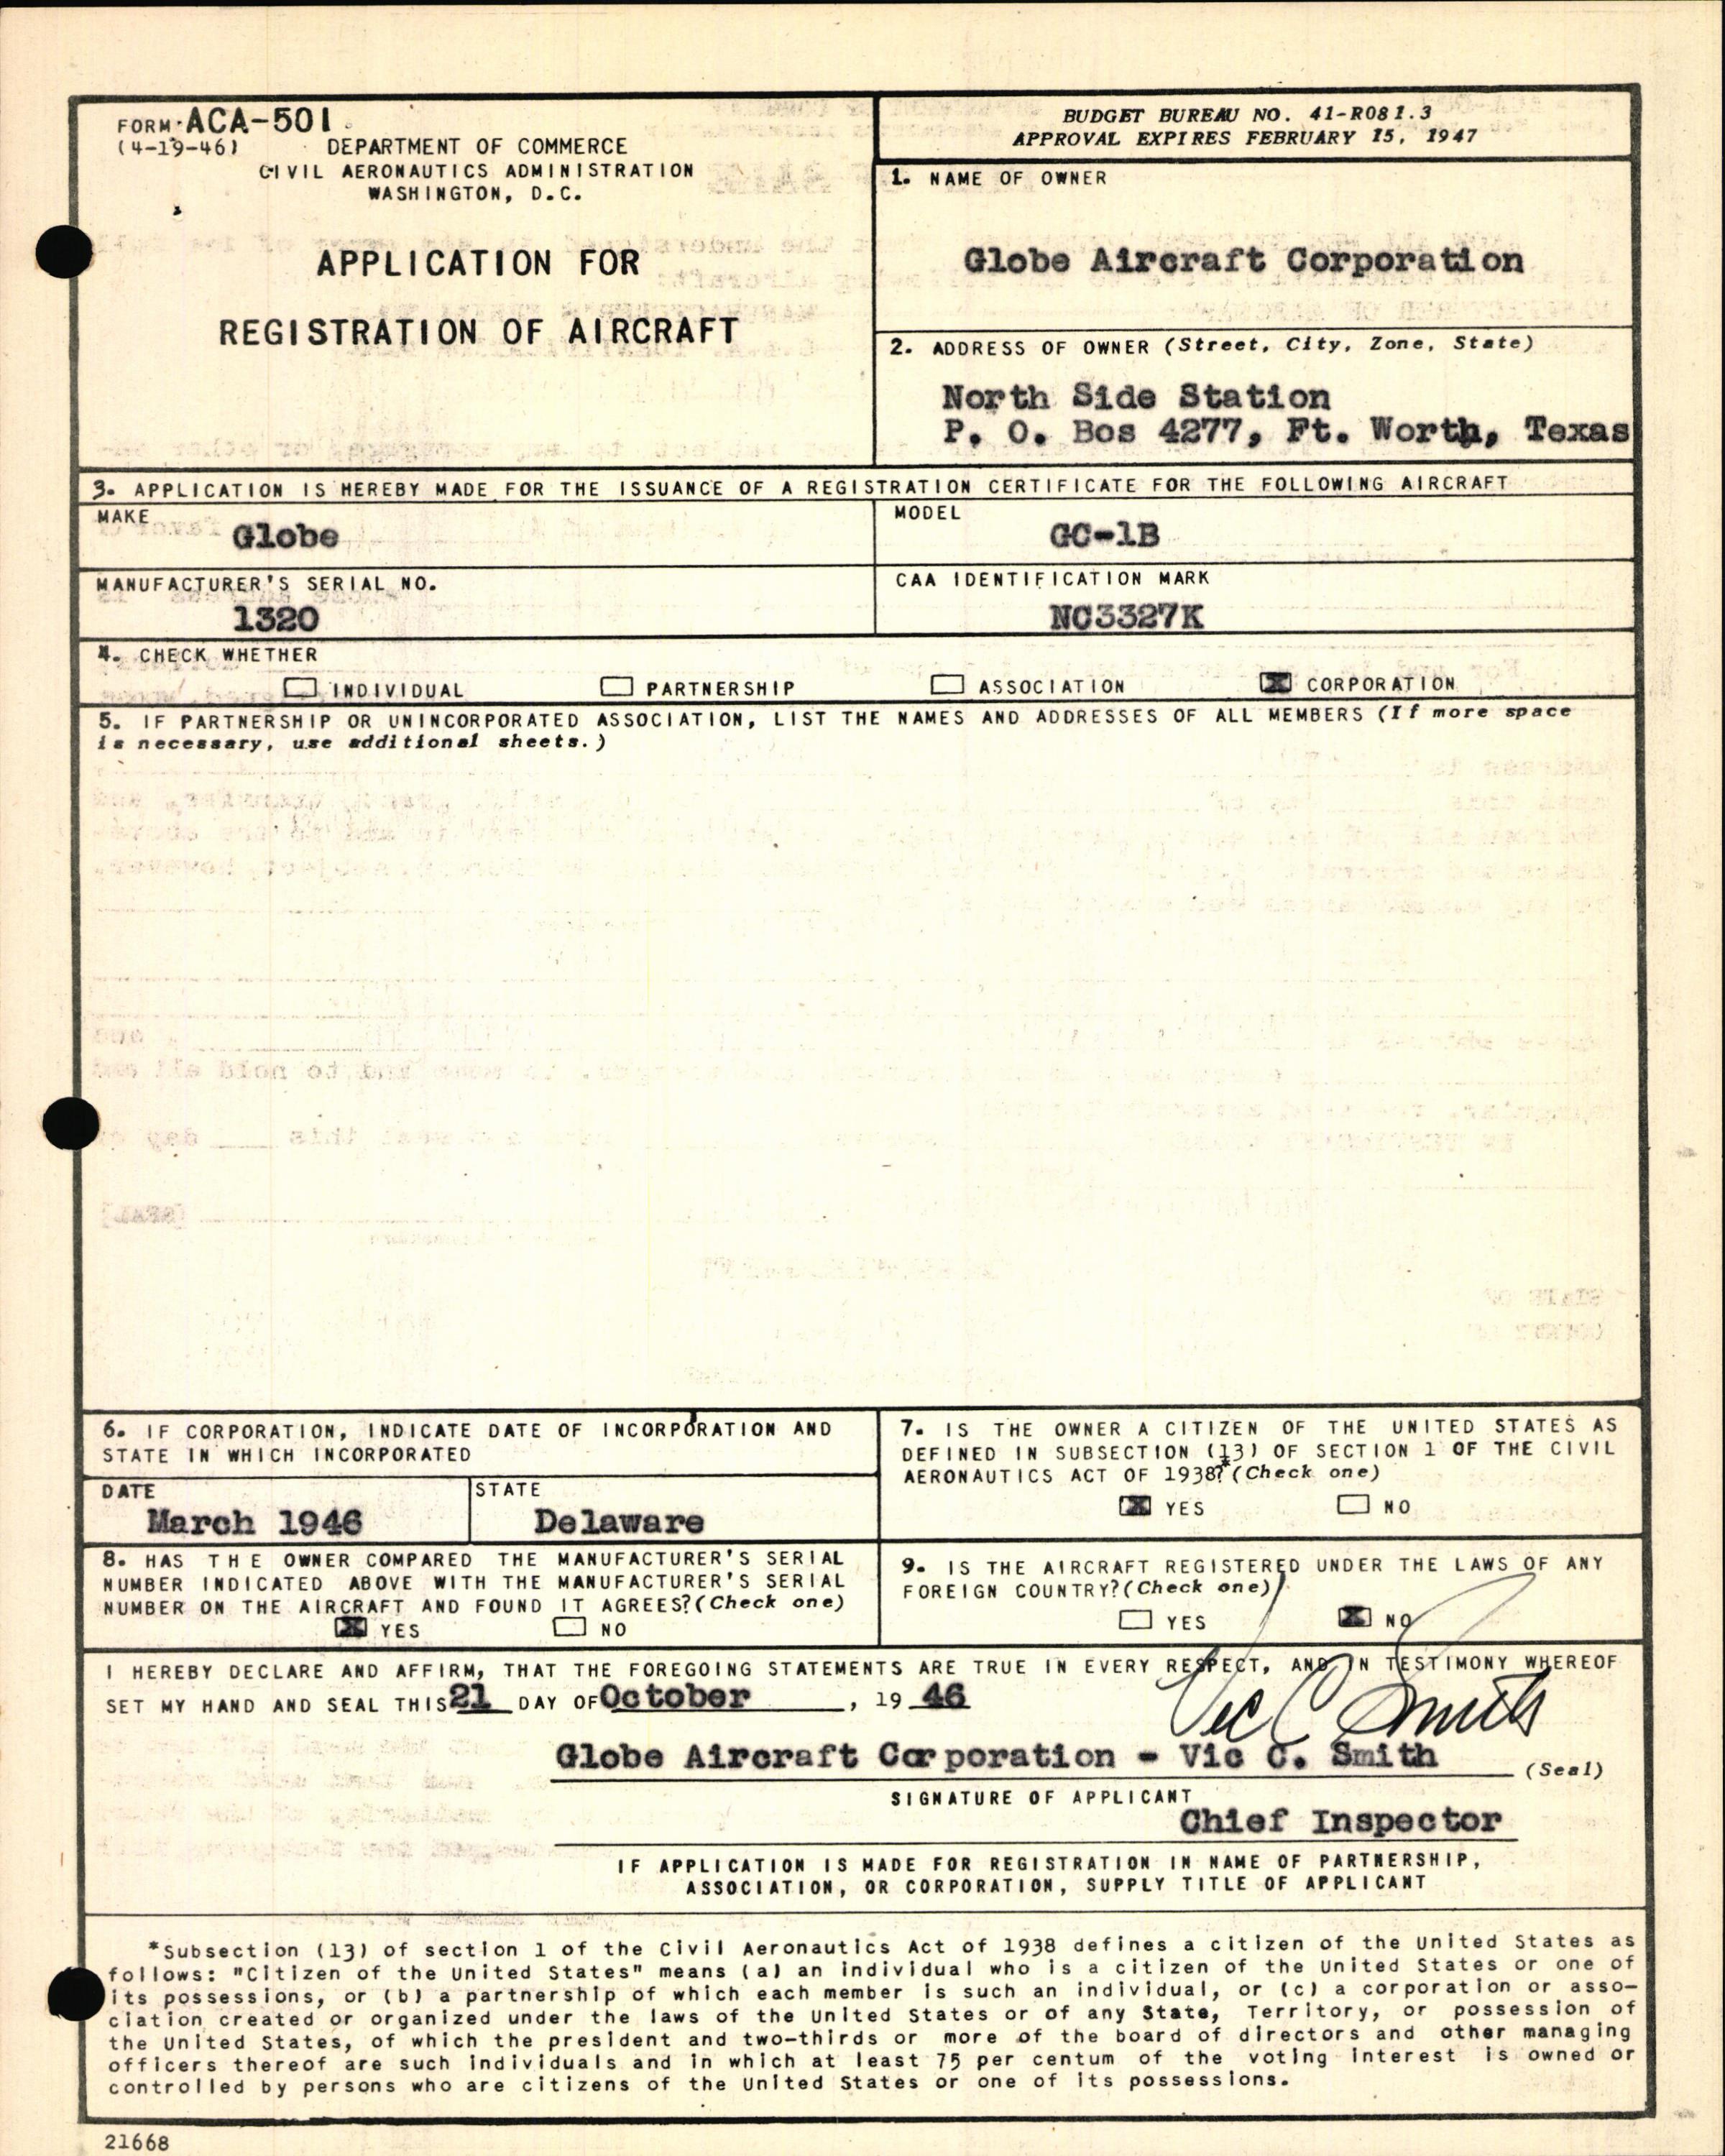 FORM ACA-501
(4-19-46)
DEPARTMENT OF COMMERCE
CIVIL AERONAUTICS ADMINISTRATION
WASHINGTON, D.C.
APPLICATION FOR
REGISTRATION OF AIRCRAFT
BUDGET BUREAU NO. 41-R081.3
APPROVAL EXPIRES FEBRUARY 15, 1947
1. NAME OF OWNER
Globe Aircraft Corporation
2. ADDRESS OF OWNER (Street, City, Zone, State)
North Side Station
P. O. Bos 4277, Ft. Worth, Texas
3. APPLICATION IS HEREBY MADE FOR THE ISSUANCE OF A REGISTRATION CERTIFICATE FOR THE FOLLOWING AIRCRAFT
MAKE
Globe
MODEL
GC-1B
MANUFACTURER'S SERIAL NO.
1320
CAA IDENTIFICATION MARK
NC3327K
4. CHECK WHETHER
INDIVIDUAL PARTNERSHIP ASSOCIATION X CORPORATION
5. IF PARTNERSHIP OR UNINCORPORATED ASSOCIATION, LIST THE NAMES AND ADDRESSES OF ALL MEMBERS (If more space
is necessary, use additional sheets.)
6. IF CORPORATION, INDICATE DATE OF INCORPORATION AND
STATE IN WHICH INCORPORATED
DATE
March 1946
STATE
Delaware
7. IS THE OWNER A CITIZEN OF THE UNITED STATES AS
DEFINED IN SUBSECTION (13) OF SECTION 1 OF THE CIVIL
AERONAUTICS ACT OF 1938?* (Check one)
X YES NO
8. HAS THE OWNER COMPARED THE MANUFACTURER'S SERIAL
NUMBER INDICATED ABOVE WITH THE MANUFACTURER'S SERIAL
NUMBER ON THE AIRCRAFT AND FOUND IT AGREES? (Check one)
X YES NO
9. IS THE AIRCRAFT REGISTERED UNDER THE LAWS OF ANY
FOREIGN COUNTRY? (Check one)
YES X NO
I HEREBY DECLARE AND AFFIRM, THAT THE FOREGOING STATEMENTS ARE TRUE IN EVERY RESPECT, AND IN TESTIMONY WHEREOF
SET MY HAND AND SEAL THIS 21 DAY OF October, 19 46
Vic C Smith
Globe Aircraft Corporation - Vic C. Smith (Seal)
SIGNATURE OF APPLICANT
Chief Inspector
IF APPLICATION IS MADE FOR REGISTRATION IN NAME OF PARTNERSHIP,
ASSOCIATION, OR CORPORATION, SUPPLY TITLE OF APPLICANT
*Subsection (13) of section 1 of the Civil Aeronautics Act of 1938 defines a citizen of the United States as
follows: "Citizen of the United States" means (a) an individual who is a citizen of the United States or one of
its possessions, or (b) a partnership of which each member is such an individual, or (c) a corporation or asso-
ciation created or organized under the laws of the United States or of any State, Territory, or possession of
the United States, of which the president and two-thirds or more of the board of directors and other managing
officers thereof are such individuals and in which at least 75 per centum of the voting interest is owned or
controlled by persons who are citizens of the United States or one of its possessions.
21668